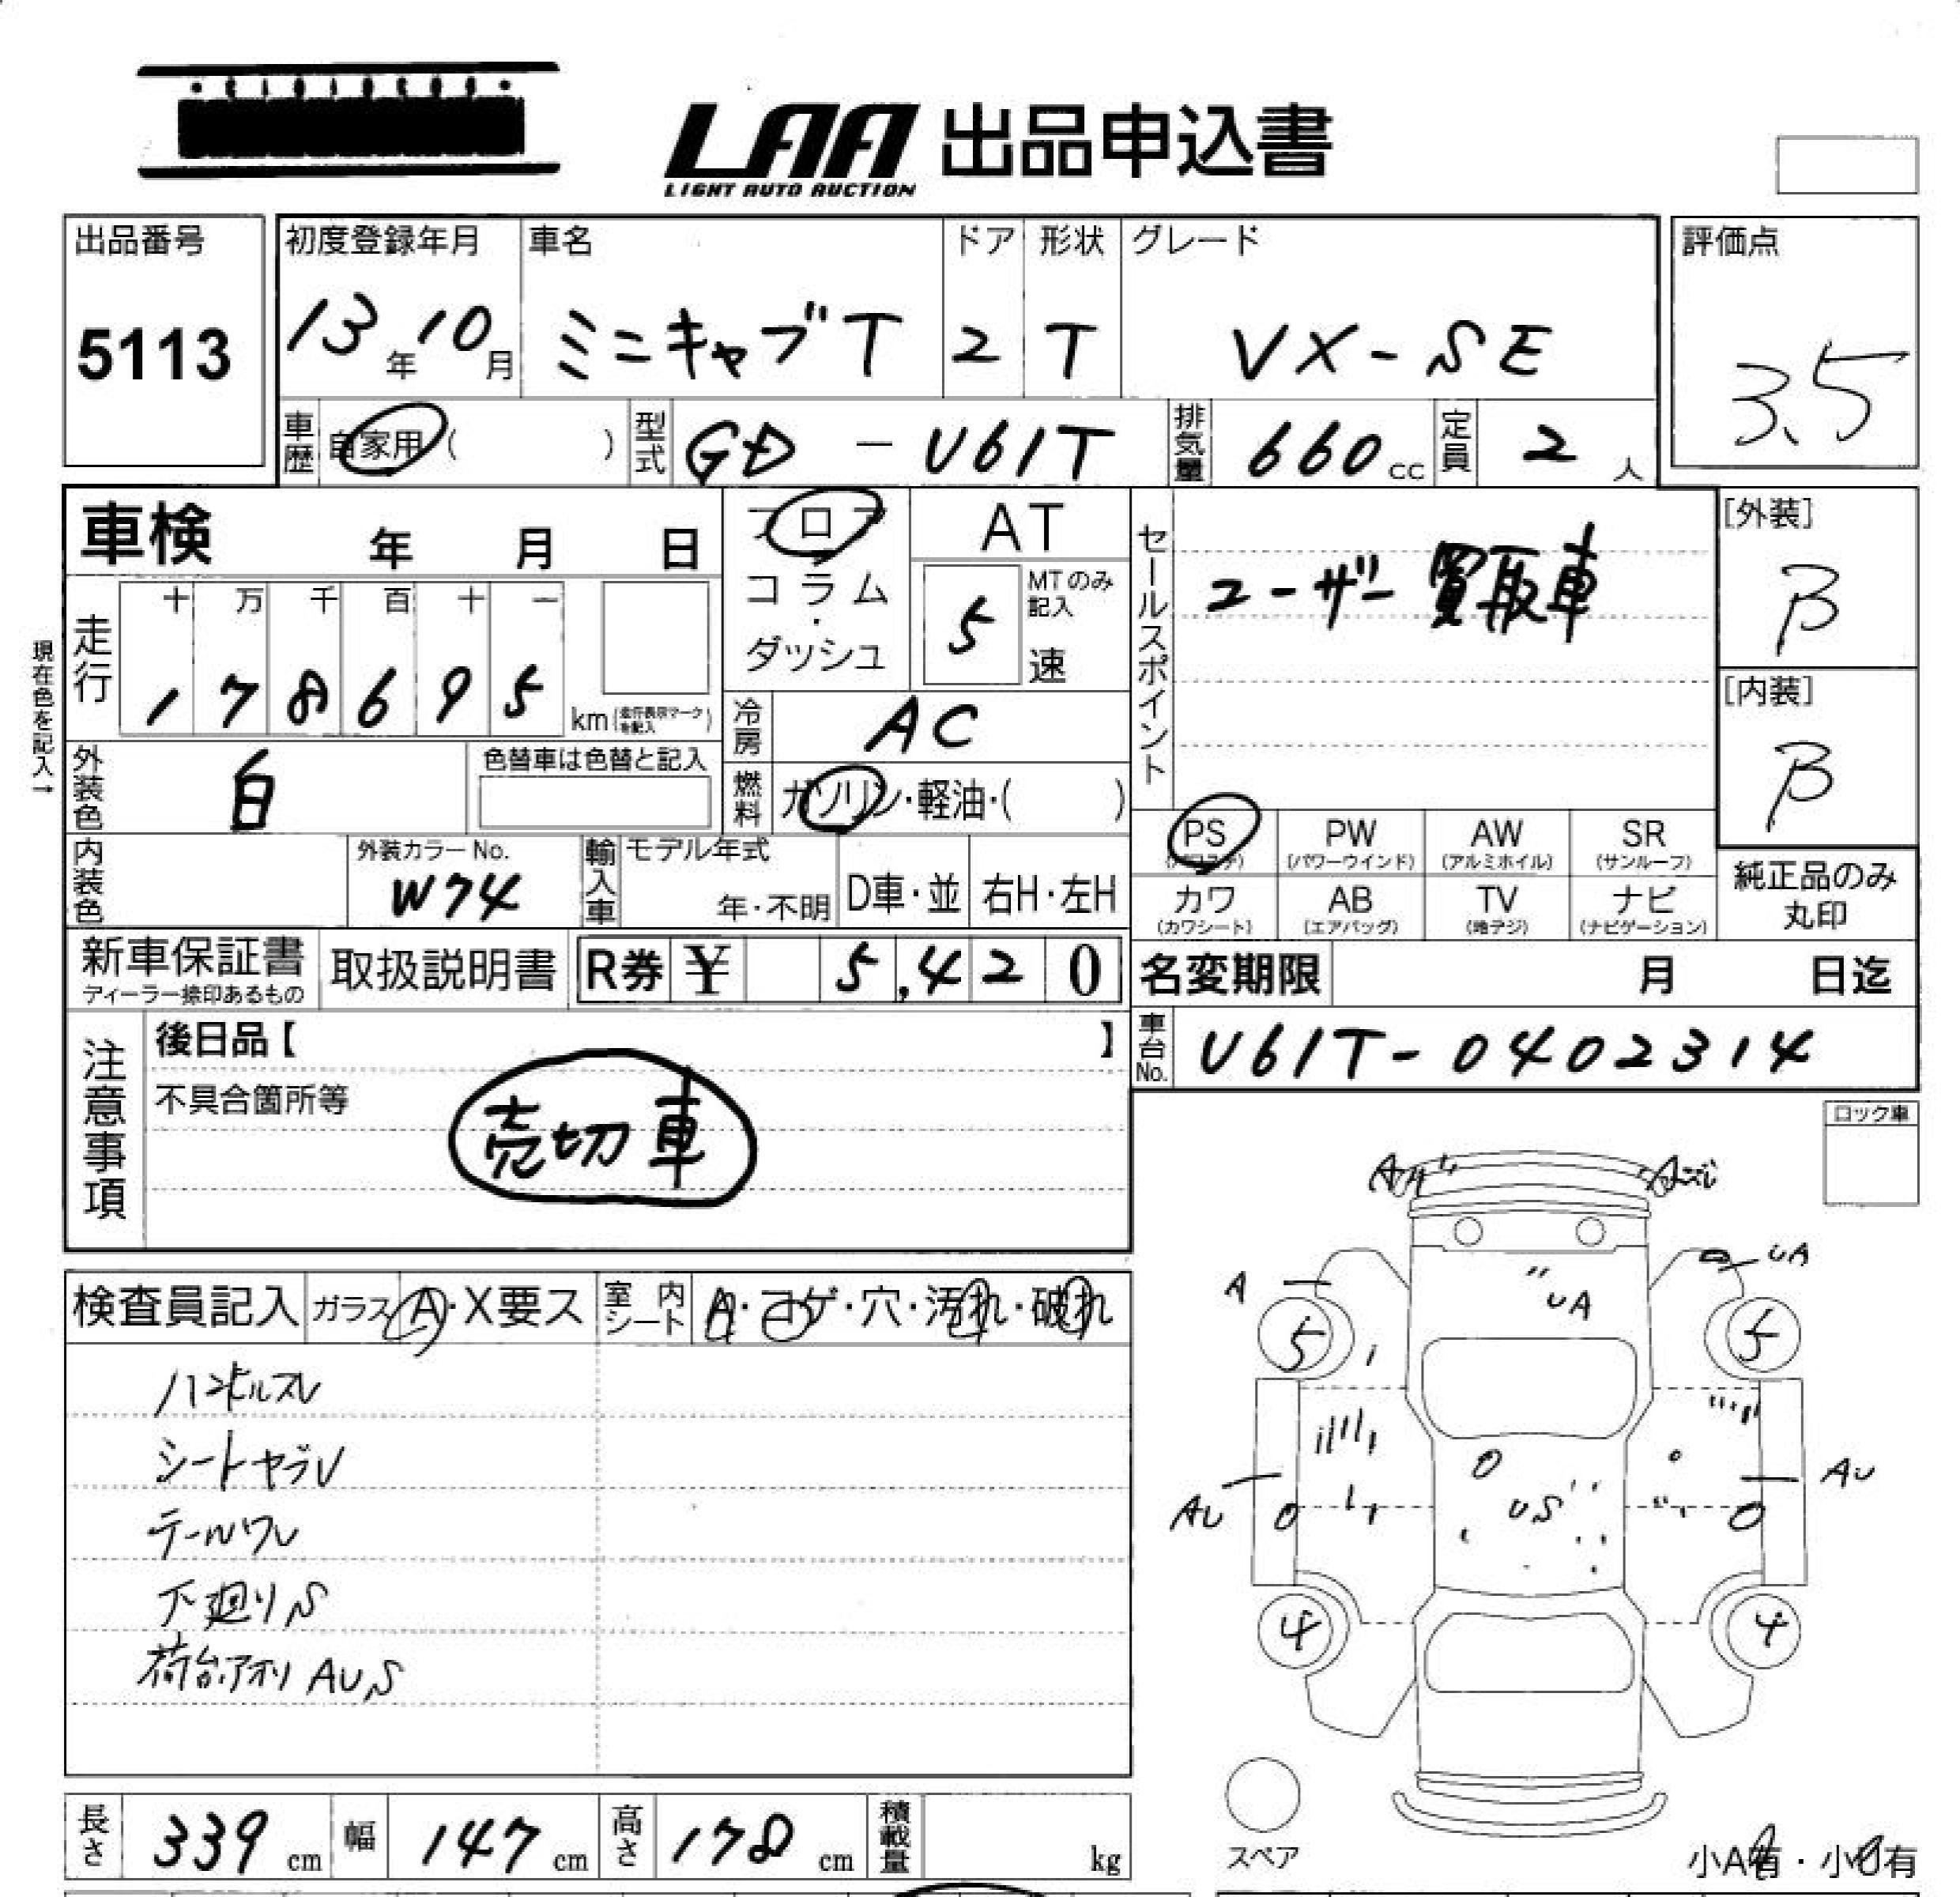 LAA 出品申込書
LIGHT AUTO AUCTION
出品番号
5113
初度登録年月
13年10月
車名
ミニキャブT
ドア
2
形状
T
グレード
VX-SE
評価点
3.5
車歴 自家用 ( )
型式 GD - U61T
排気量 660 cc
定員 2 人
車検 年 月 日
フロア
コラム
・
ダッシュ
AT
5
MTのみ
記入
速
セールスポイント
ユーザー買取車
[外装]
B
[内装]
B
現在色を記入→
走行
十 万 千 百 十 一
1 7 8 6 9 5 km (走行表示マーク を記入)
冷房 AC
外装色 白
色替車は色替と記入
燃料 ガソリン・軽油・( )
PS (パワステ)
PW (パワーウインド)
AW (アルミホイル)
SR (サンルーフ)
カワ (カワシート)
AB (エアバッグ)
TV (地デジ)
ナビ (ナビゲーション)
純正品のみ
丸印
内装色
外装カラーNo.
W74
輸入車
モデル年式
年・不明
D車・並
右H・左H
新車保証書
ディーラー捺印あるもの
取扱説明書
R券 ¥ 5,420
名変期限 月 日迄
車台No. U61T-0402314
注意事項
後日品【 】
不具合箇所等
売切車
ロック車
検査員記入
ガラス A・X要ス
室内シート A・コゲ・穴・汚れ・破れ
ハンドルスレ
シートヤブレ
テールワレ
下廻りS
荷台アオリ AUS
A
A
UA
A
UA
5
5
AU
US
AU
4
4
スペア
小A有・小U有
長さ 339 cm
幅 147 cm
高さ 178 cm
積載量 kg